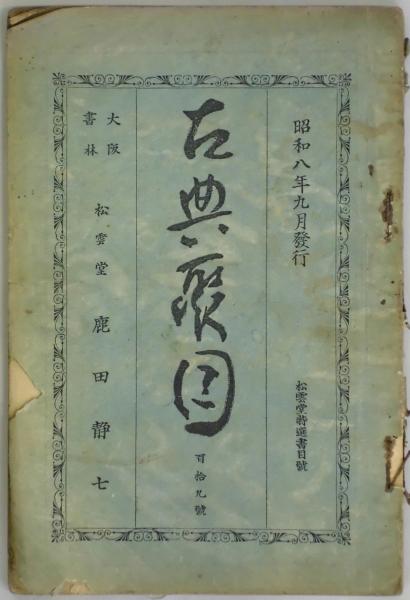 昭和八年九月發行
松雲堂特選書目號
古典聚目
百拾九號
大阪
書林
松雲堂 鹿田靜七